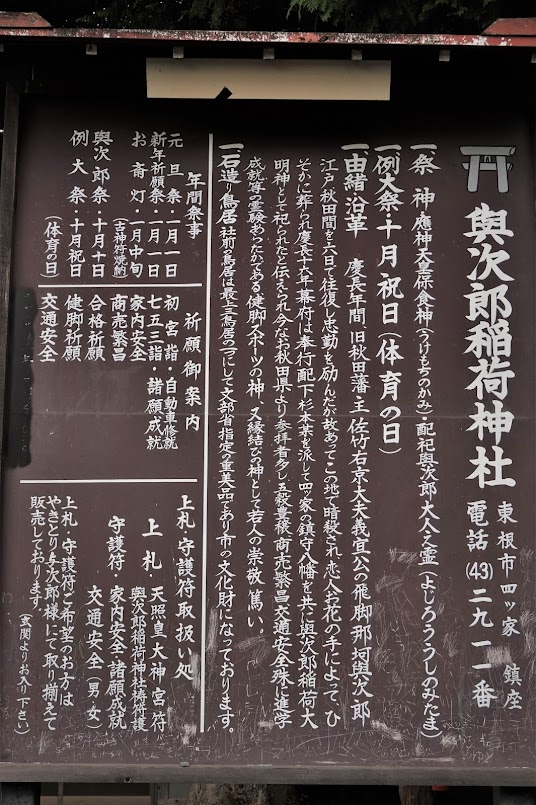 與次郎稲荷神社
東根市四ッ家 鎮座
電話(43)二九一一番
一祭 神 應神天皇保食神(うけもちのかみ)・配祀與次郎大人之霊(よじろううしのみたま)
一例大祭・十月祝日(体育の日)
一由緒沿革 慶長年間、旧秋田藩主佐竹右京大夫義宣公の飛脚那珂與次郎
江戸秋田間を六日で往復し忠勤を励んだが故あってこの地で暗殺され、恋人お花の手によってひ
そかに葬られ慶長十六年幕府は奉行配下杉本某を派して四ッ家の鎮守八幡を共に與次郎稲荷大
明神として祀られたと伝えられ、今なお秋田県より参拝者多し、五穀豊穣、商売繁昌交通安全殊に進学
成就等の霊験あらたかである。健脚、スポーツの神、又縁結びの神として若人の崇敬、篤い。
一石造り鳥居 社前の鳥居は最上三鳥居の一つにして文部省指定の重美品であり市の文化財になっております。
年間祭事
元旦祭・一月一日
新年祈願祭・一月一日
お斎灯・一月中旬
(古神符焼納)
與次郎祭・十月十日
例大祭・十月祝日
(体育の日)
祈願御案内
初宮詣・自動車修祓
七五三詣・諸願成就
家内安全
商売繁昌
合格祈願
健脚祈願
交通安全
上札・守護符取扱い処
上札・天照皇大神宮符
與次郎稲荷神社特護
守護符・家内安全諸願成就
交通安全(男・女)
上札・守護符ご希望のお方は
やきとり与次郎様にて取り揃えて
販売しております。
(玄関よりお入り下さい)